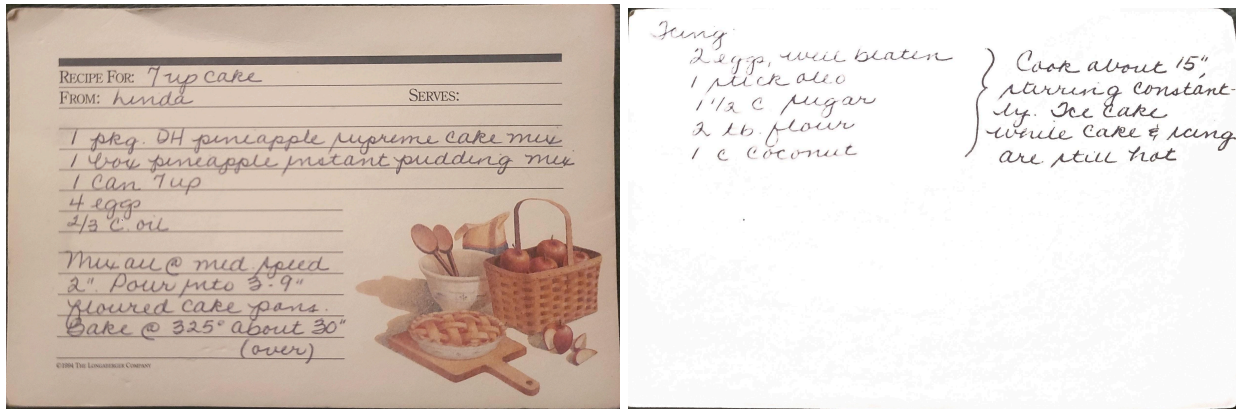 RECIPE FOR: 7 up Cake
FROM: Linda SERVES:
1 pkg. DH pineapple supreme cake mix
1 box pineapple instant pudding mix
1 can 7 up
4 eggs
2/3 c. oil
Mix all @ med. speed
2". Pour into 3-9"
floured cake pans.
Bake @ 325° about 30"
(over)
©1994 THE LONGABERGER COMPANY
Icing
2 eggs, well beaten
1 stick oleo
1 1/2 c sugar
2 tb. flour
1 c coconut
Cook about 15",
stirring constant-
ly. Ice cake
while cake & icing
are still hot